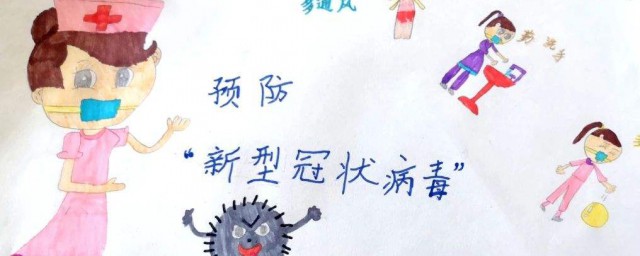 多通风
勤洗手
预防
“新型冠状病毒”